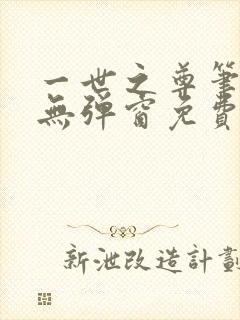 一世之尊筆
無彈窗免費
新泄改造計劃